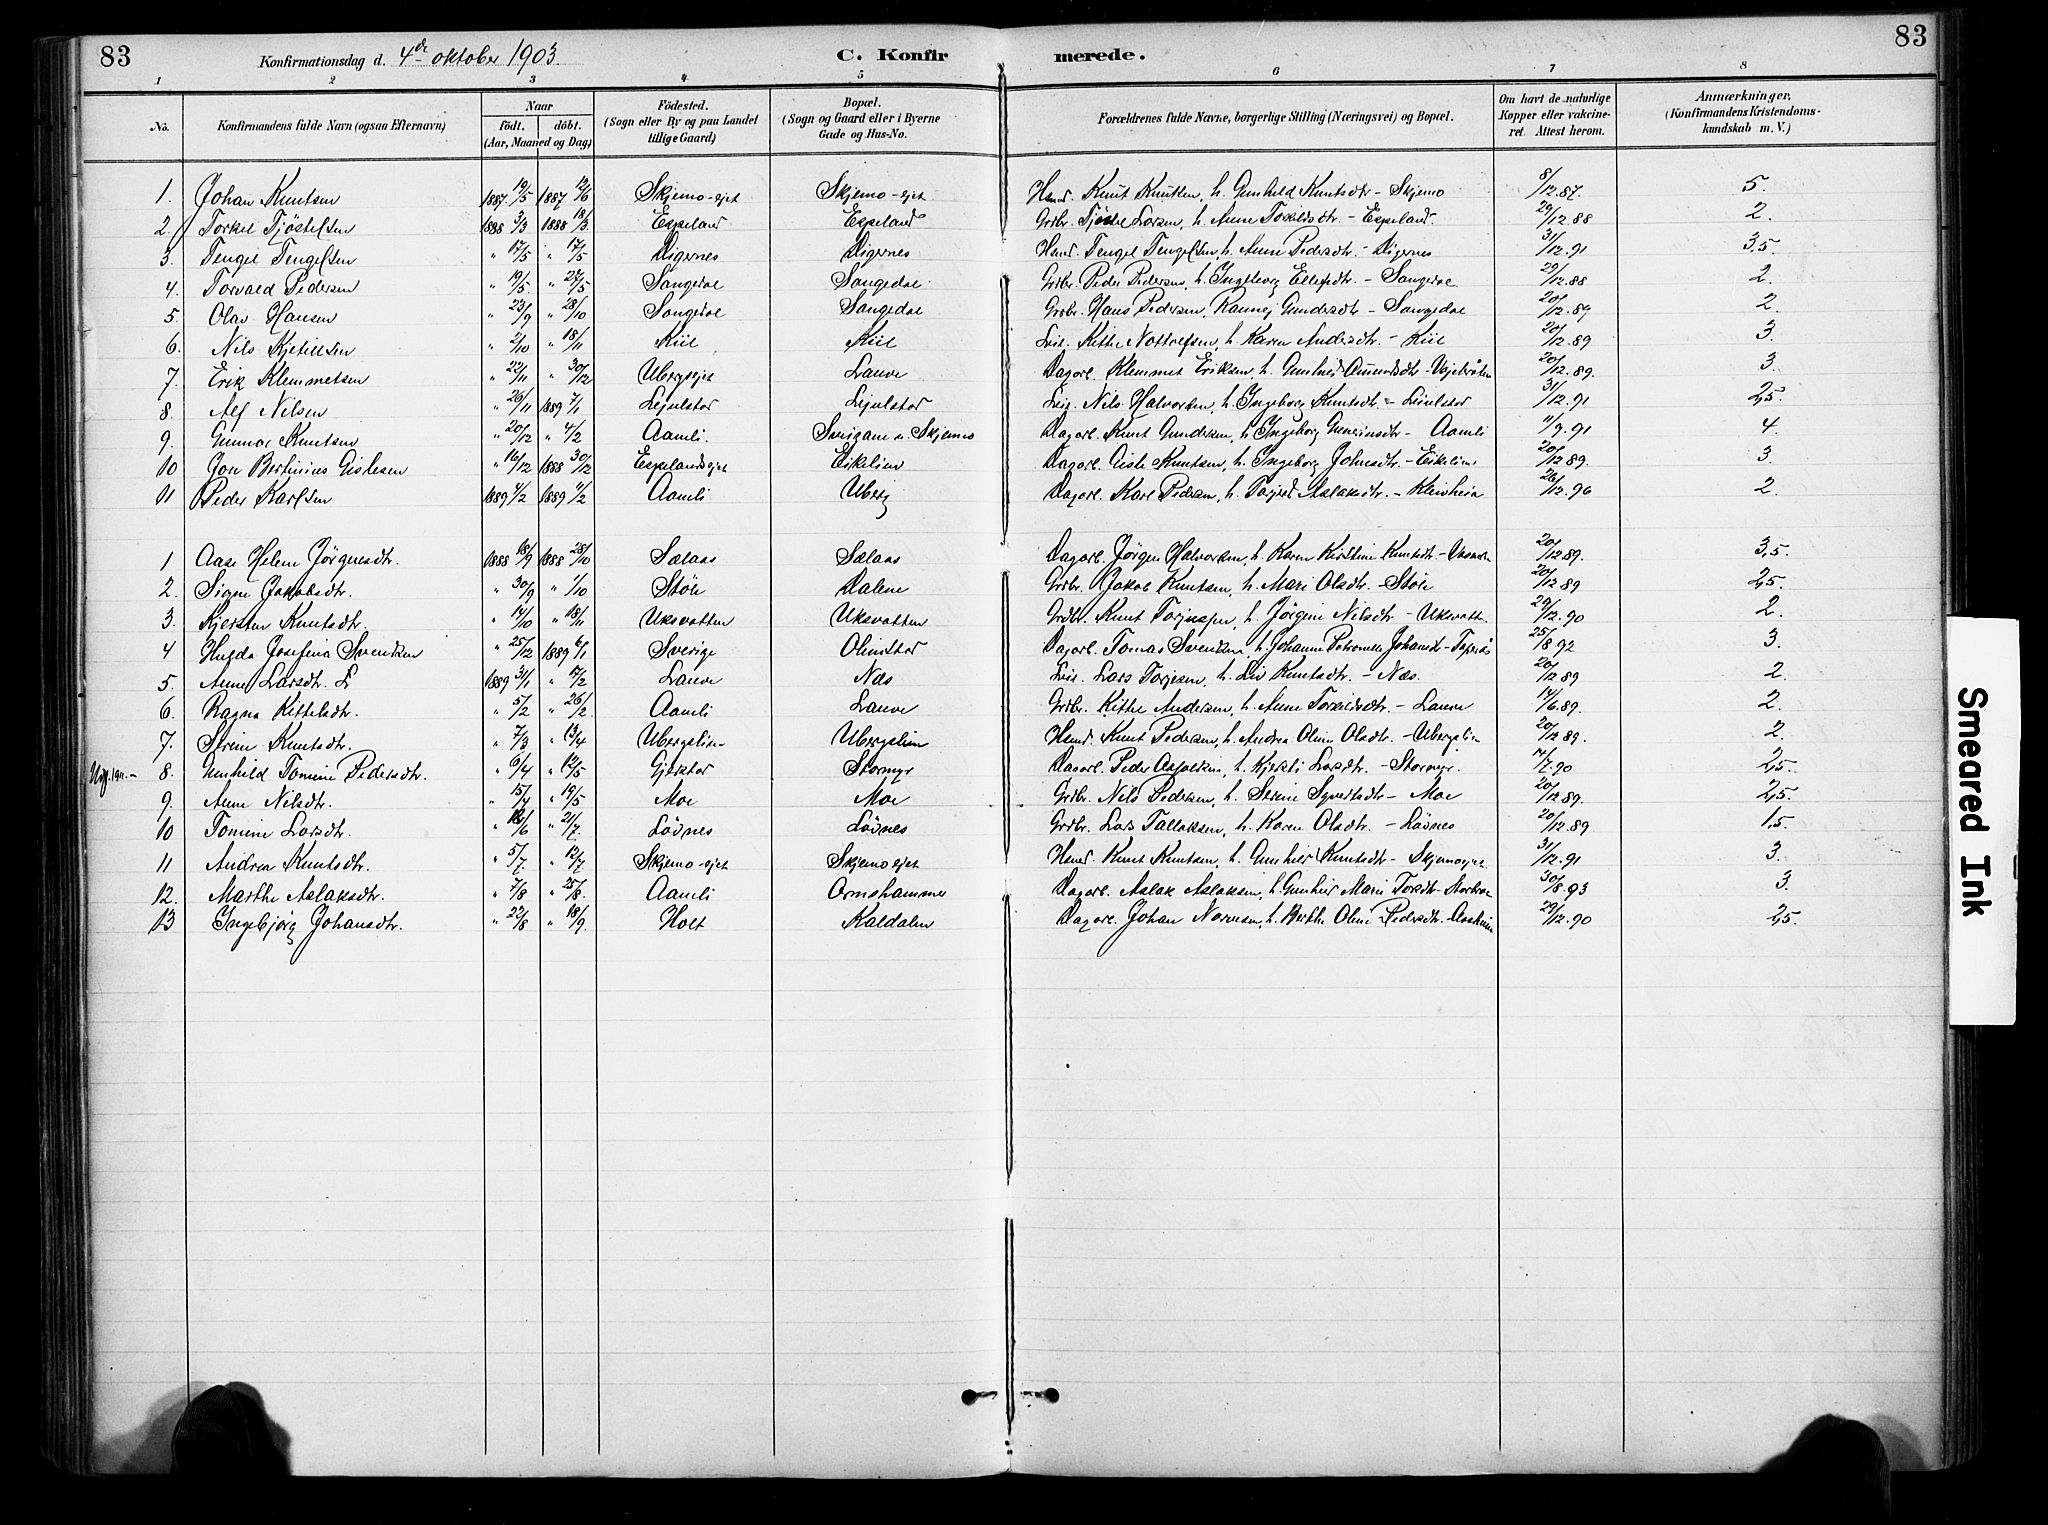 83 Konfirmationsdag d. 4de oktober 1903. C. Konfirmerede. 83
1 2 3 4 5 6 7 8
No. Konfirmandens fulde Navn (ogsaa Efternavn) Naar födt. döbt. (Aar, Maaned og Dag) Födested. (Sogn eller By og paa Landet tillige Gaard) Bopæl. (Sogn og Gaard eller i Byerne Gade og Hus-No. Forældrenes fulde Navne, borgerlige Stilling (Næringsvei) og Bopæl. Om havt de naturlige Kopper eller vakcineret. Attest herom. Anmærkninger. (Konfirmandens Kristendomskundskab m. V.)
1. Johan Knutsen 1887 19/5 1887 12/6 Skjemo-ejet Skjemo-ejet Hsmd. Knut Knutsen, h. Gunhild Knutsdtr - Skjemo 8/12.87. 5.
2. Torkel Tjöstelsen 1888 3/3 1888 18/3. Espeland Espeland Grdbr. Tjöstel Larsen, h. Anne Torkildsdtr. - Espeland. 29/12 88 2.
3. Tengel Tengelsen " 17/5 " 17/5 Digernes Digernes Hsmd. Tengel Tengelsen, h. Anne Pedersdtr. - Digernes 31/12.91 3,5.
4. Torvald Pedersen " 19/5. " 27/5 Songedal Songedal Grdbr. Peder Pedersen, h. Ingeborg Ellefsdtr. - Songedal 29/12.88 2.
5. Olav Hansen " 23/9 " 28/10 Songedal Songedal Grdbr. Hans Pedersen, Rannei Gundersdtr - Songedal 20/12.89 2.
6. Nils Kjetilsen " 2/10 " 18/11 Kiil Kiil Lei. Kittel Nottolfsen, h. Karen Andersdtr. - Kiil 20/12.89 3.
7. Erik Klemmetsen " 22/11 " 30/12 Ubergsejet Lauve Dagarb. Klemmet Eriksen h. Gunhild 20/12.89. 3.
8. Alf Nilsen " 26/11 1889 7/1 Lejulstøl Lejulstøl Lei. Nils Halvorsen, h. Ingeborg Knutsdtr 31/12.91 2,5.
9. Gunnar Knutsen " 20/12 " 4/2 Aamli. Skjemo Dagarb. Knut Gundersen, h. Ingeborg - Aamli 11/9.91 4.
10 Jon Bertinius Gislesen " 16/12 1888 30/12 Espelandsejet Eikeliein Dagarb. Gisle Knutsen, h. Ingeborg Johnsdtr. - Eikeliein 20/12 89. 3.
11 Peder Karlsen 1889 4/2 1889 4/2 Aamli Uberg Dagarb. Karl Pedersen, h. Torjerd Aslaksdtr. - Kleivheia 26/12.96 2.
1 Aase Helene Jörgensdtr. 1888 18/9 1888 28/10 Selaas Selaas Dagarb. Jörgen Halvorsen, h. Karen Kirstine Knutsdtr. 20/12.89. 3,5.
2. Signe Jakobsdtr. " 30/9 " 1/10 Støle Dalene Grdbr. Jakob Knutsen, h. Mari Olsdtr. - Støle 20/12 89 2,5.
3. Kjersten Knutsdtr. " 14/10 " 18/11 Uksvatten Uksvatten Grdbr. Knut Torjussen, h. Jörgine Nilsdtr - Uksvatten 29/12.90 2.
4 Hulda Josefina Svendsen " 25/12 1889 6/1 Sverige Olimstøl Dagarb. Tomas Svendsen, h. Johanne Petronelle 25/8 92 3.
5. Anne Larsdtr. L 1889 3/1 " 17/2 Lauve Næs Lei. Lars Torjesen, h. Liv Knutsdtr. - Næs. 20/12 89 2.
6. Ragna Kittelsdtr. " 5/2 " 26/2. Aamli Lauve Grdbr. Kittel Andersen, h. Anne Torkildsdtr - Lauve 14/6.89. 2.
7. Serine Knutsdtr. " 7/3 " 13/4 Ubergsliein Ubergsliein Hsmd. Knut Pedersen, h. Andrea Oline Olsdtr. - Ubergsliein 20/12 89. 2.
8. Gunhild Tomine Pedersdtr. " 6/4 " 12/5 Gjerstøl Stormyr Dagarb. Peder Asfoldsen, h. Kjersti Larsdtr. - Stormyr. 14/7.90 2,5.
9. Anne Nilsdtr. " 15/4 " 19/5 Moe Moe Grdbr. Nils Pedersen, h. Serine Syvertsdtr - Moe 20/12 89. 2,5.
10 Tomine Larsdtr. " /6 " 21/7. Lövnes Lövnes Grdbr. Lars Tallaksen, h. Karen Olsdtr - Lövnes 20/12.89 1,5.
11 Andrea Knutsdtr. " 5/7. " 12/7 Skjemo-ejet Skjemo ejet Hsmd. Knut Knutsen, h. Gunhild Knutsdtr - Skjemoejet 31/12.91 3.
12. Marthe Aslaksdtr. " 7/8 " 25/8. Aamli Ormshammer Dagarb. Aslak Aslaksen, h. Gunhild Marie 30/8.93 3.
13 Ingebjörg Johansdtr. " 22/8 " 18/9 Holt Kaldalen Dagarb. Johan h. Berthe Oline Pedersdtr. 29/12.90 2,5.
Smeared Ink